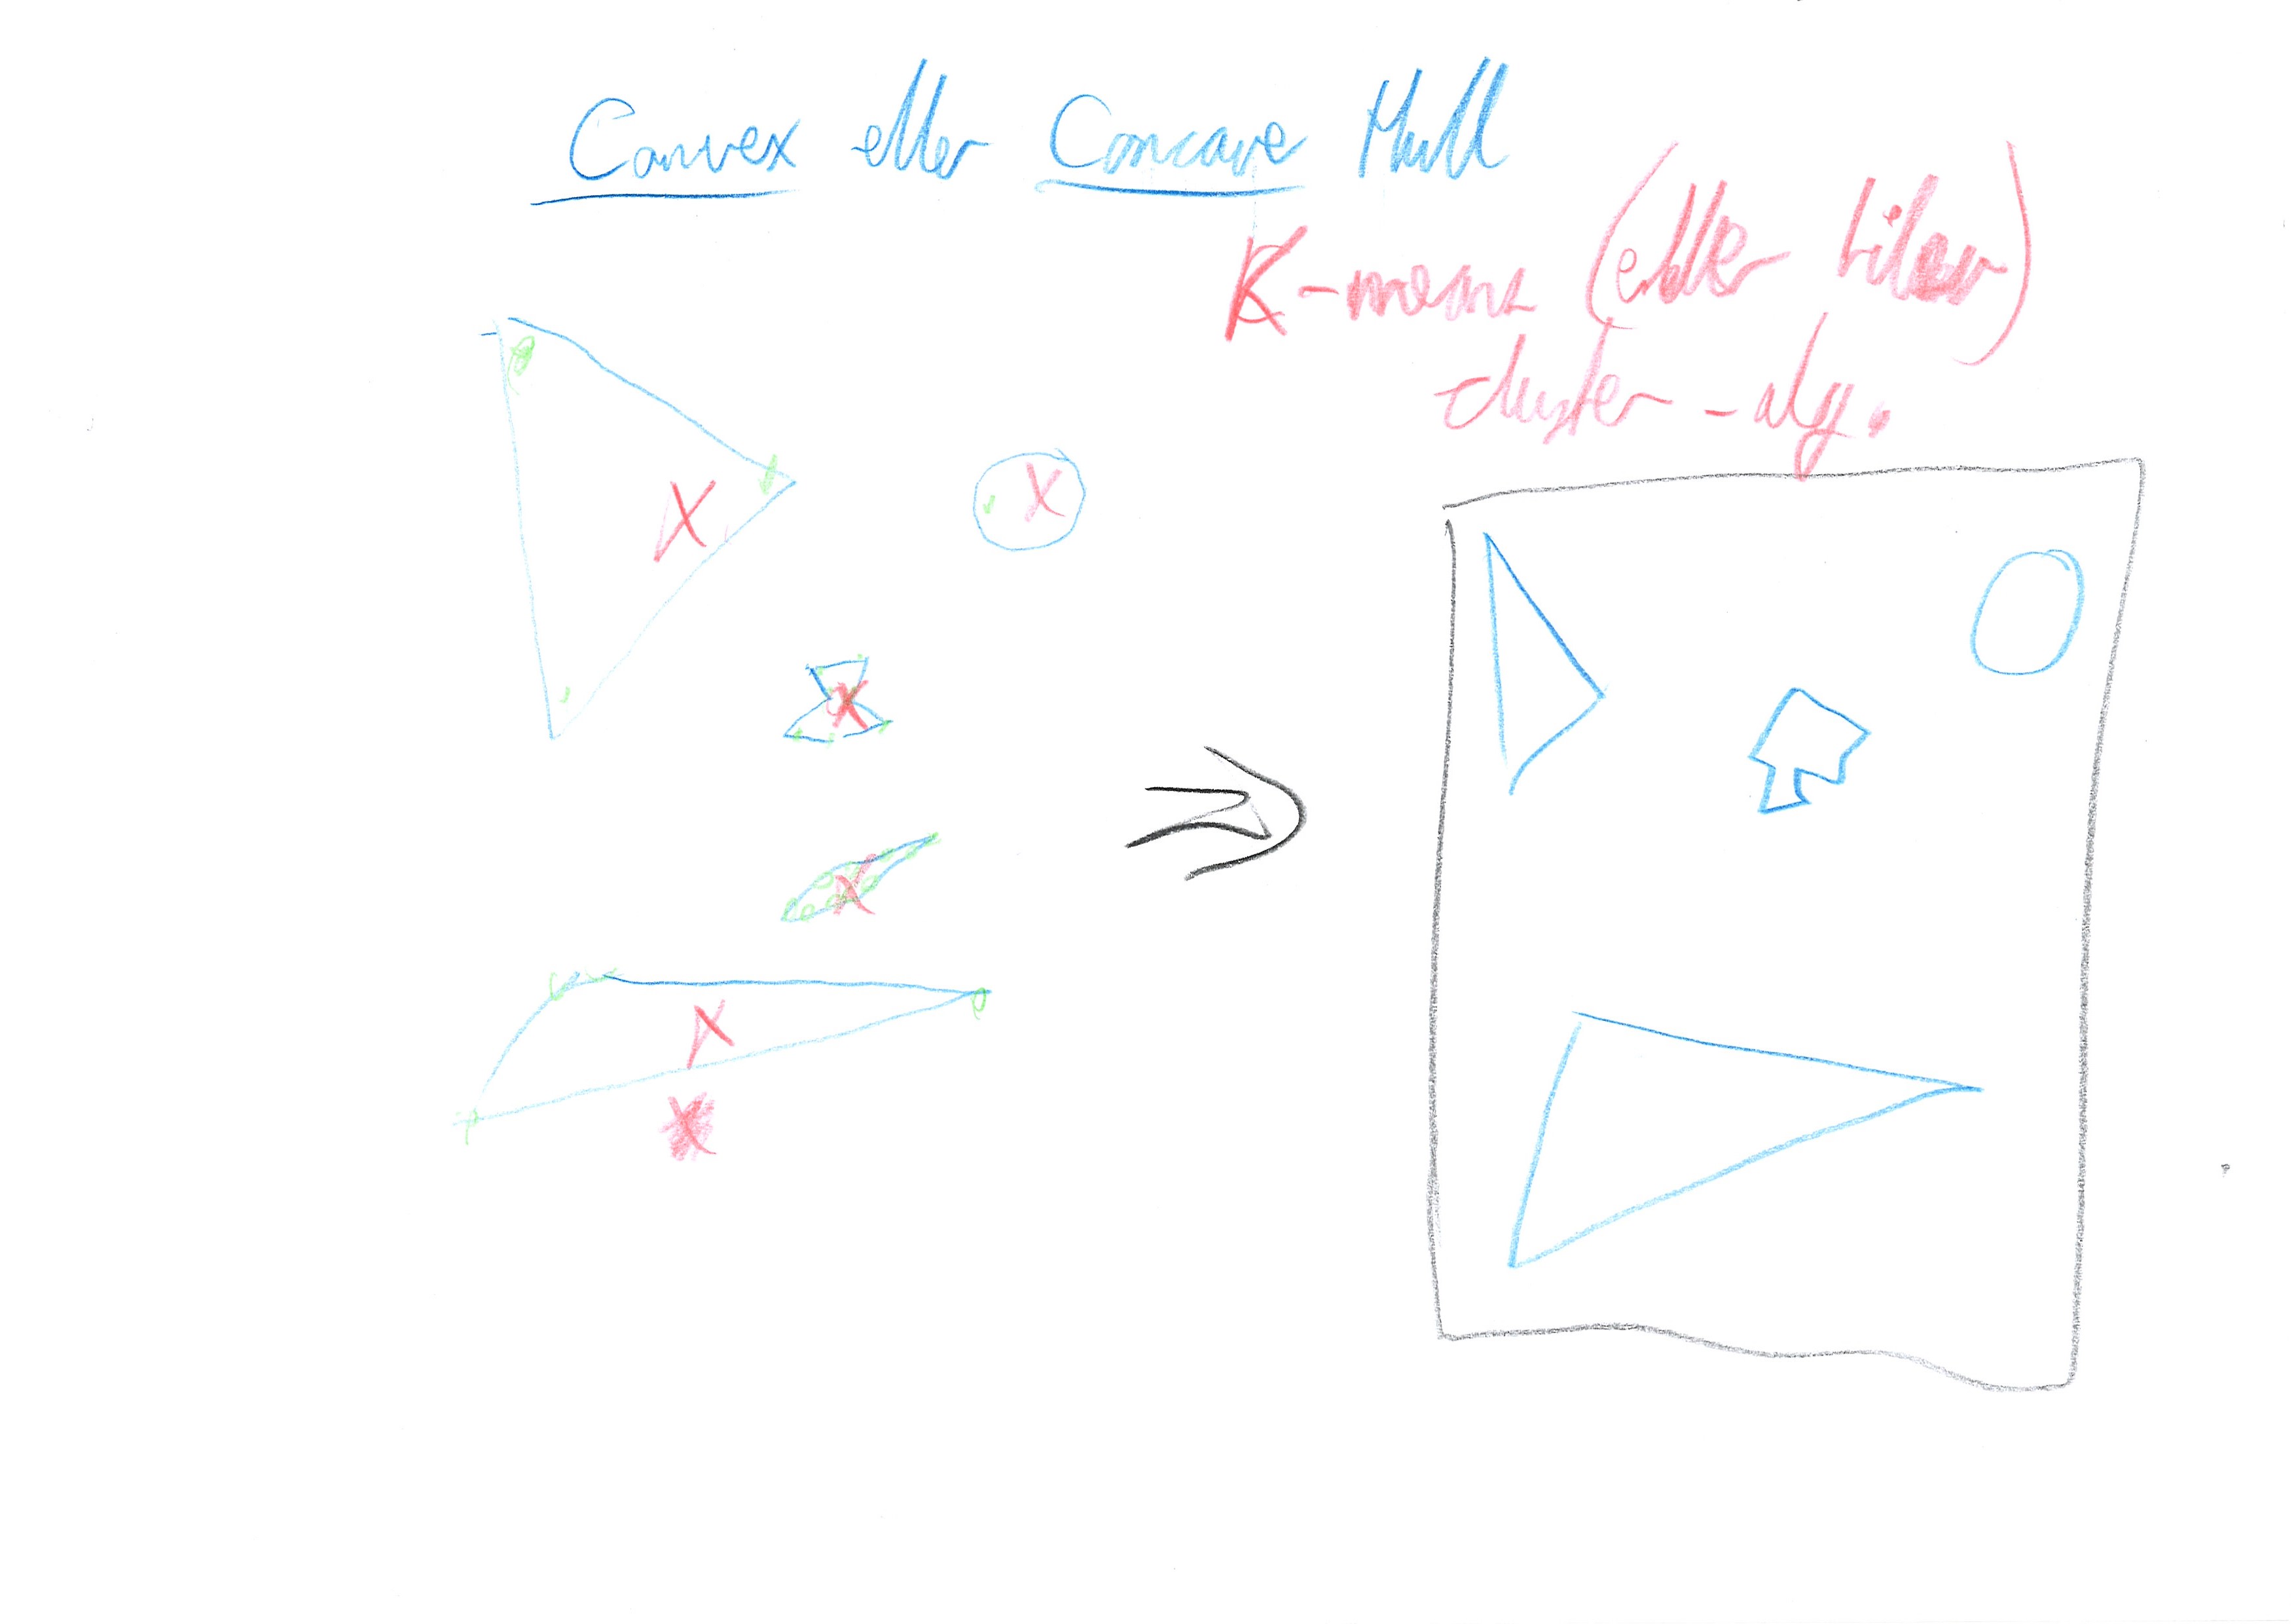 Convex eller Concave Hull
K-means (eller liknan)
cluster-alg.